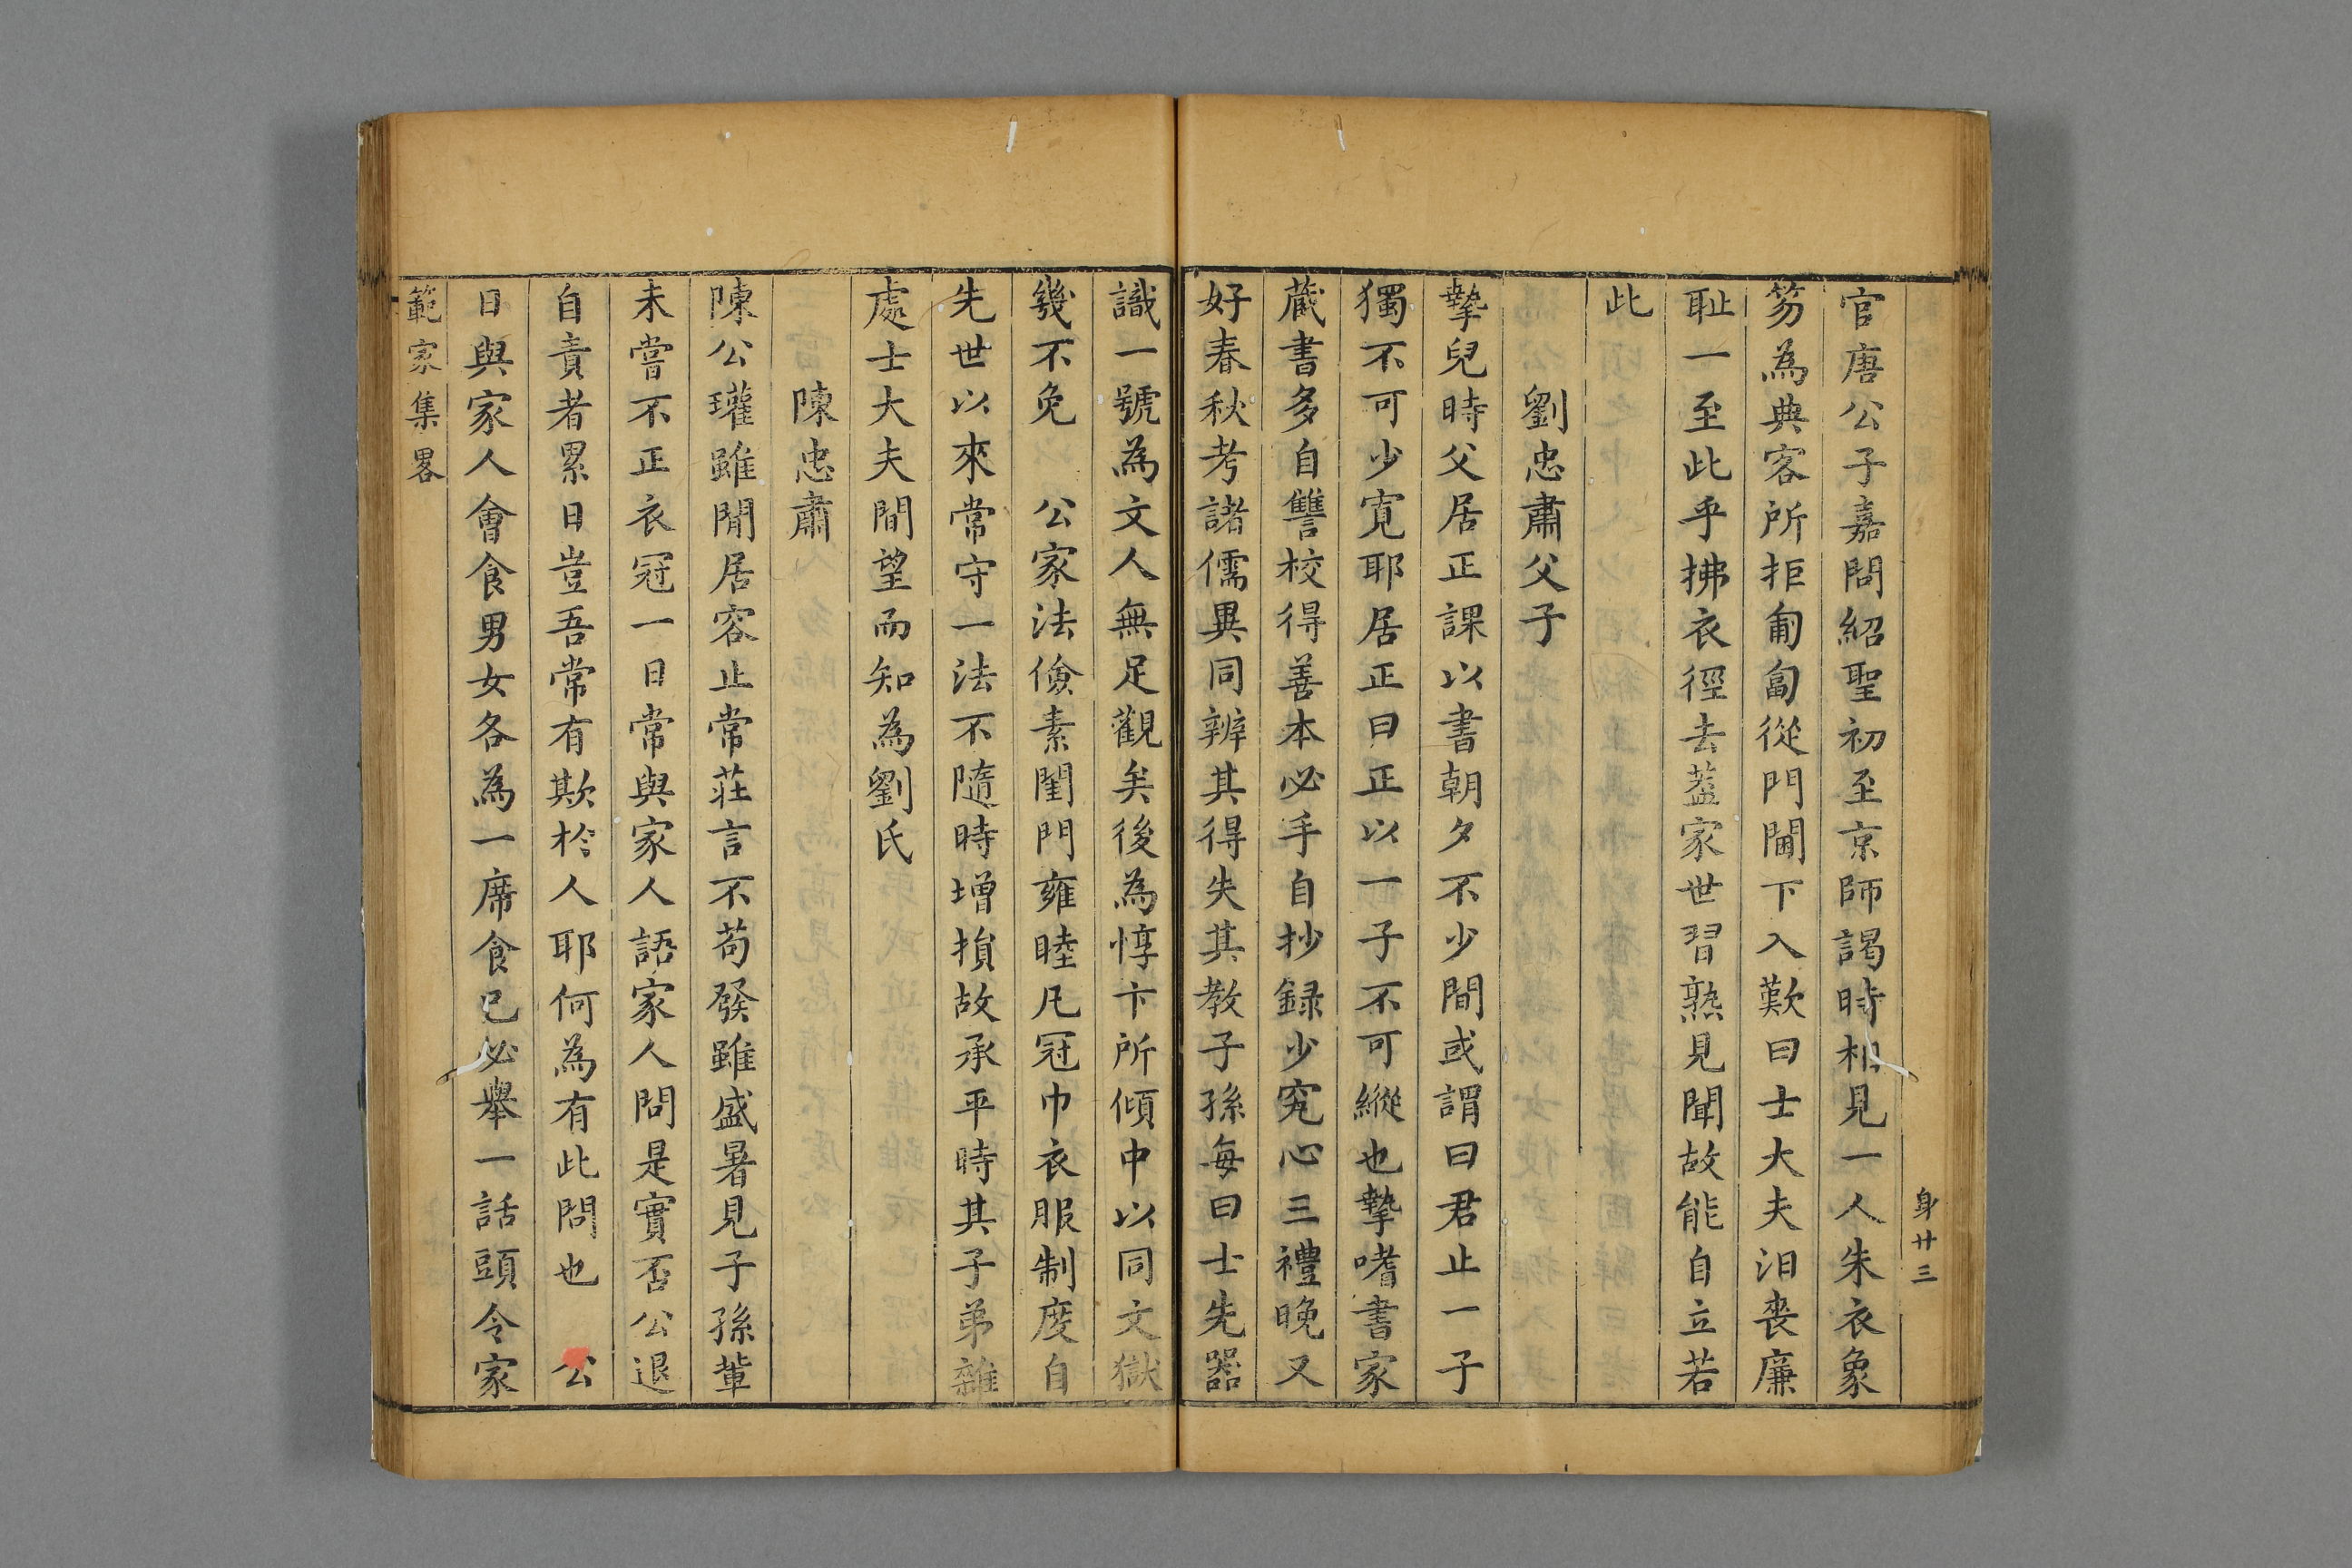 身廿三
官唐公子嘉問紹聖初至京師謁時相見一人朱衣象
笏為典客所拒匍匐從門閫下入歎曰士大夫汨喪廉
耻一至此乎拂衣徑去葢家世習熟見聞故能自立若
此
劉忠肅父子
摯兒時父居正課以書朝夕不少間或謂曰君止一子
獨不可少寛耶居正曰正以一子不可縱也摯嗜書家
藏書多自讐校得善本必手自抄録少究心三禮晚又
好春秋考諸儒異同辨其得失其教子孫每曰士先器
識一號為文人無足觀矣後為惇卞所傾中以同文獄
幾不免 公家法儉素閨門雍睦凡冠巾衣服制度自
先世以來常守一法不隨時增損故承平時其子弟雜
處士大夫間望而知為劉氏
陳忠肅
陳公瓘雖閒居容止常莊言不苟發雖盛暑見子孫輩
未嘗不正衣冠一日常與家人語家人問是實否公退
自責者累日豈吾常有欺於人耶何為有此問也 公
日與家人會食男女各為一席食已必舉一話頭令家
範家集畧